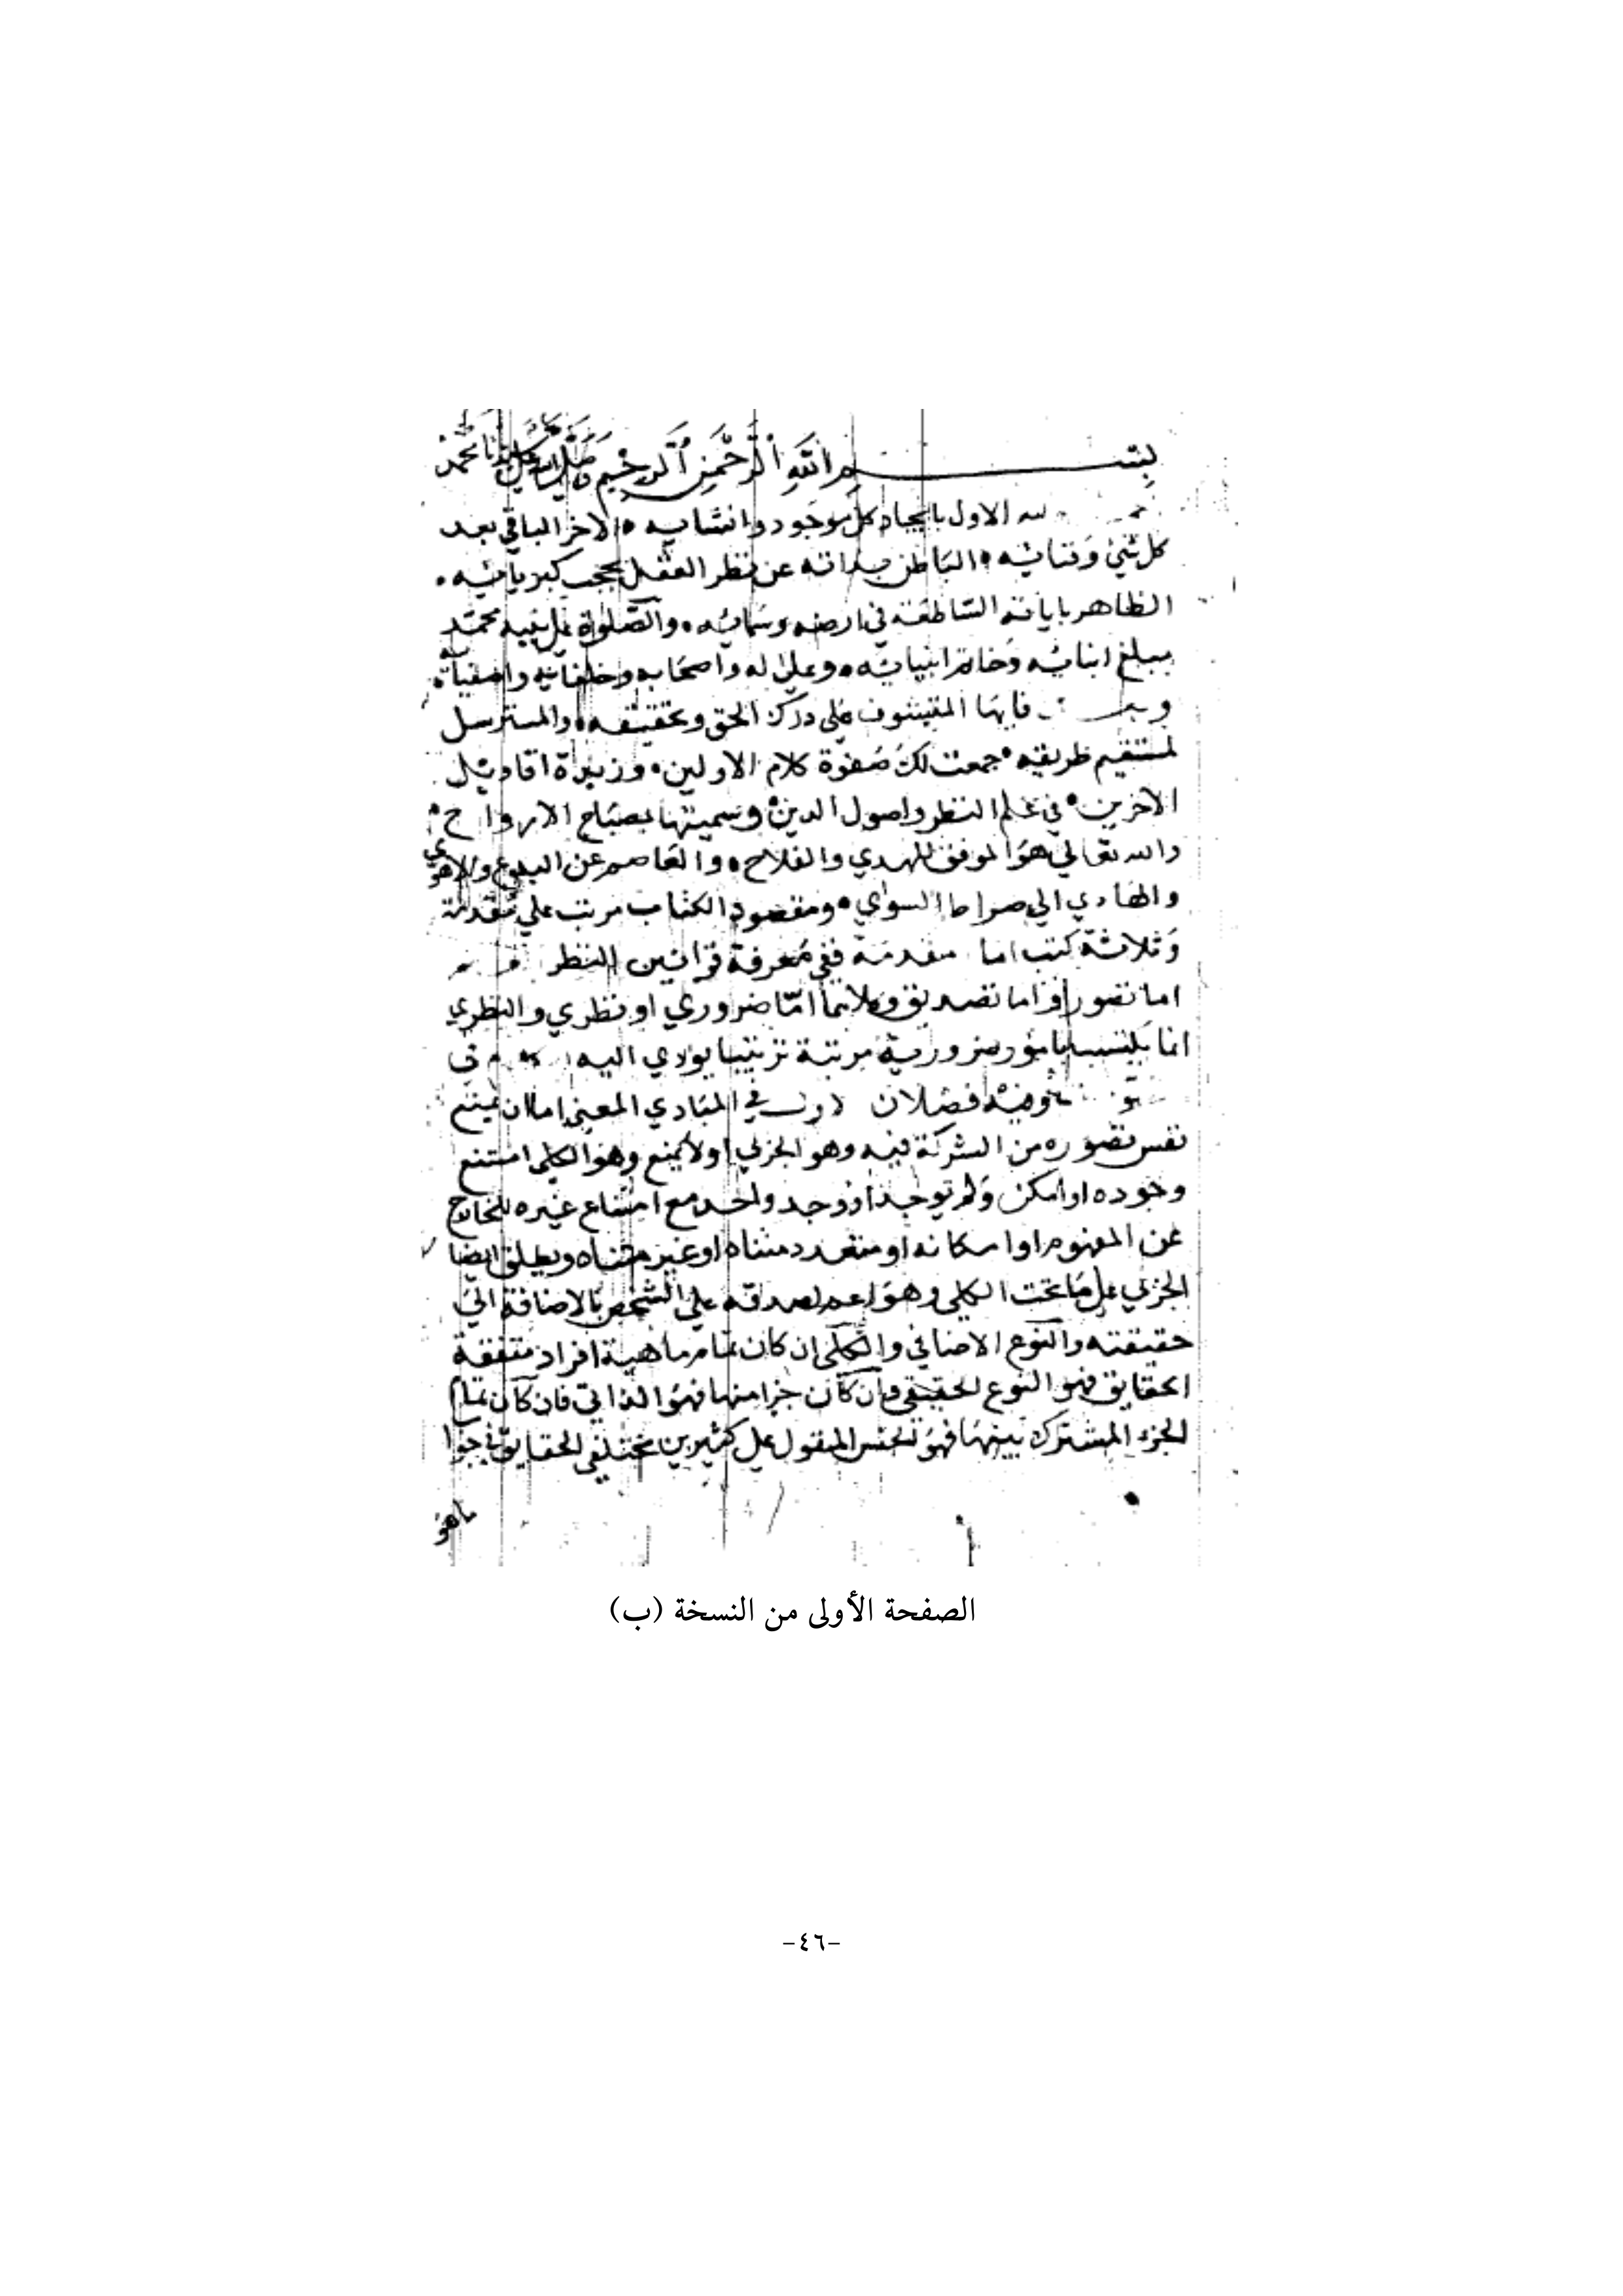 بسم الله الرحمن الرحيم وصلى الله على سيدنا محمد
لله الاول بايجاد كل موجود وانشايه الاخر الباقي بعد
كل شيئ وفنائه الباطن بذاته عن نظر العقل بحجب كبريائيه
الظاهر باياته الساطعة في ارضه وسمائه والصلوة على نبيه محمد
مبلغ انبائه وخاتم انبيائه وعلى اله واصحابه وخلفائه واصفيائه
فايها على درك الحق وتحقيقه والمسترسل
لمستقيم طريقه جمعت لك صفوة كلام الاولين وزبدة اقاويل
الاخرين في علم النظر واصول الدين وسميتها بمصباح الارواح
والله تعالي هو الموفق للهدي والفلاح والعاصم عن البدع والاهوي
والهادي الي صراط السواي ومقصود الكتاب مرتب علي مقدمة
وثلاثة كتب اما مقدمة ففي معرفة قوانين النظر
اما تصور او اما تصديق وكلاهما اما ضروري او نظري والنظري
انما يكتسب بامور ضرورية مرتبة ترتيبا يودي اليه
وفيه فصلان الاول في المبادي المعنى اما ان يمنع
نفس تصوره من الشركة فيه وهو الجزئي او لا يمنع وهو الكلي امتنع
وجوده او امكن ولم يوجد او وجد واحد مع امتناع غيره لخارج
عن المفهوم او امكانه او متعدد متناه او غير متناه ويطلق ايضا
الجزئي على ما تحت الكلي وهو اعم لصدقه علي الشخص بالاضافة الي
حقيقته والنوع الاضافي والكلي ان كان تمام ماهية افراد متفقة
الحقايق فهو النوع الحقيقي وان كان جزا منها فهو الذاتي فان كان تمام
الجزء المشترك بينها فهو الجنس المقول على كثيرين مختلفي الحقايق في جوا
ماهو
الصفحة الأولى من النسخة (ب)
-٤٦-